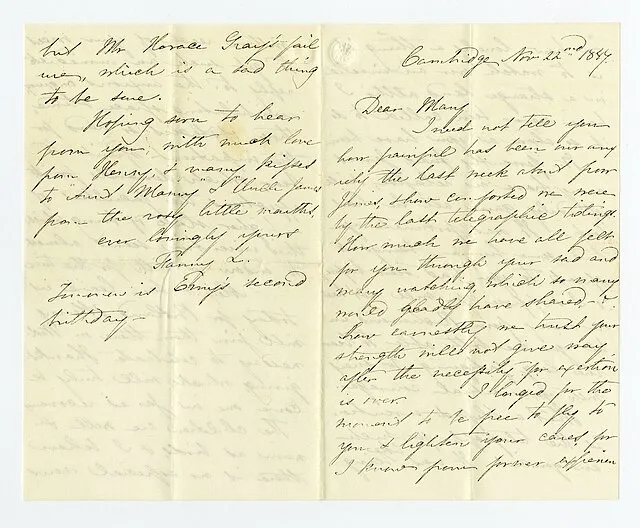 Cambridge Nov 22nd 1847
Dear Mary
I need not tell you
how painful has been our anx
iety the last week about poor
James, & how comforted we were
by the last telegraphic tidings.
How much we have all felt
for you through your sad and
many watching which so many
would gladly have shared - &
how earnestly we trust your
strength will not give way
after the necessity for exertion
is over. I longed for the
moment to be free to fly to
you & lighten your cares, for
I know from former experience
but Mr Horace Gray's fail
ure, which is a sad thing
to be sure.
Hoping soon to hear
from you, with much love
from Henry, & many kisses
to "Aunt Mamy" & "Uncle James"
from the rosy little mouths,
ever lovingly yours
Fanny L.
Tomorrow is Erny's second
birthday -